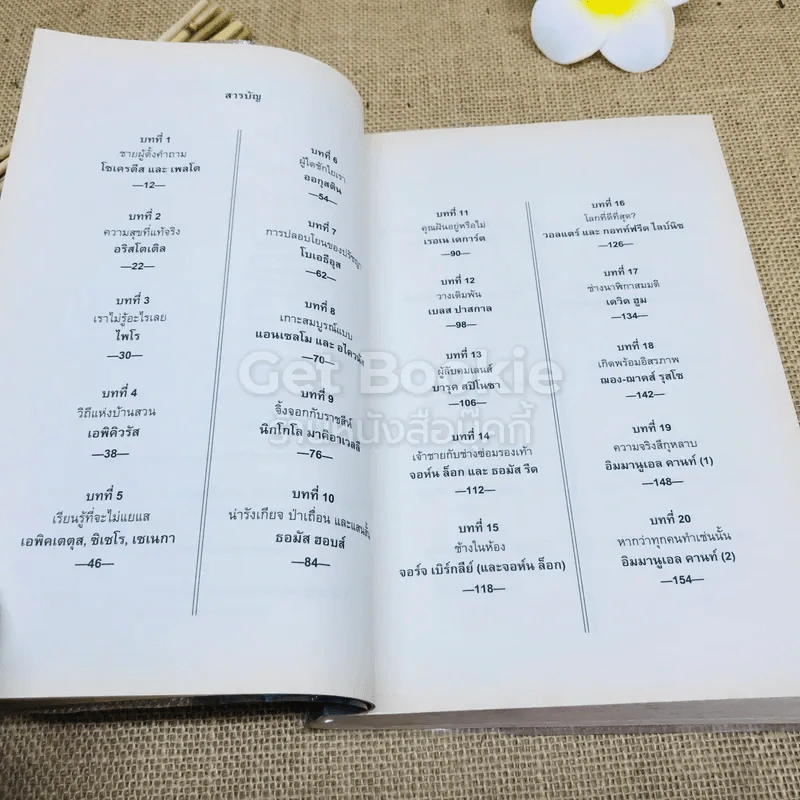 สารบัญ
บทที่ 1
ชายผู้ตั้งคำถาม
โซเครตีส และ เพลโต
—12—
บทที่ 2
ความสุขที่แท้จริง
อริสโตเติล
—22—
บทที่ 3
เราไม่รู้อะไรเลย
ไพโร
—30—
บทที่ 4
วิถีแห่งบ้านสวน
เอพิคิวรัส
—38—
บทที่ 5
เรียนรู้ที่จะไม่แยแส
เอพิคเตตุส, ซิเซโร, เซเนกา
—46—
บทที่ 6
ผู้ใดชักใยเรา
ออกุสติน
—54—
บทที่ 7
การปลอบโยนของปรัชญา
โบเอธีอุส
—62—
บทที่ 8
เกาะสมบูรณ์แบบ
แอนเซลโม และ อไควนัส
—70—
บทที่ 9
จิ้งจอกกับราชสีห์
นิกโกโล มาคิอาเวลลี
—76—
บทที่ 10
น่ารังเกียจ ป่าเถื่อน และแสนสั้น
ธอมัส ฮอบส์
—84—
บทที่ 11
คุณฝันอยู่หรือไม่
เรอเน เดการ์ต
—90—
บทที่ 12
วางเดิมพัน
เบลส ปาสกาล
—98—
บทที่ 13
ผู้ลับคมเลนส์
บารุค สปิโนซา
—106—
บทที่ 14
เจ้าชายกับช่างซ่อมรองเท้า
จอห์น ล็อก และ ธอมัส รีด
—112—
บทที่ 15
ช้างในห้อง
จอร์จ เบิร์กลีย์ (และจอห์น ล็อก)
—118—
บทที่ 16
โลกที่ดีที่สุด?
วอลแตร์ และ กอทท์ฟรีด ไลบ์นิซ
—126—
บทที่ 17
ช่างนาฬิกาสมมติ
เดวิด ฮูม
—134—
บทที่ 18
เกิดพร้อมอิสรภาพ
ฌอง-ฌาคส์ รุสโซ
—142—
บทที่ 19
ความจริงสีกุหลาบ
อิมมานูเอล คานท์ (1)
—148—
บทที่ 20
หากว่าทุกคนทำเช่นนั้น
อิมมานูเอล คานท์ (2)
—154—
Get Bookie
ร้านหนังสือบุ๊คกี้